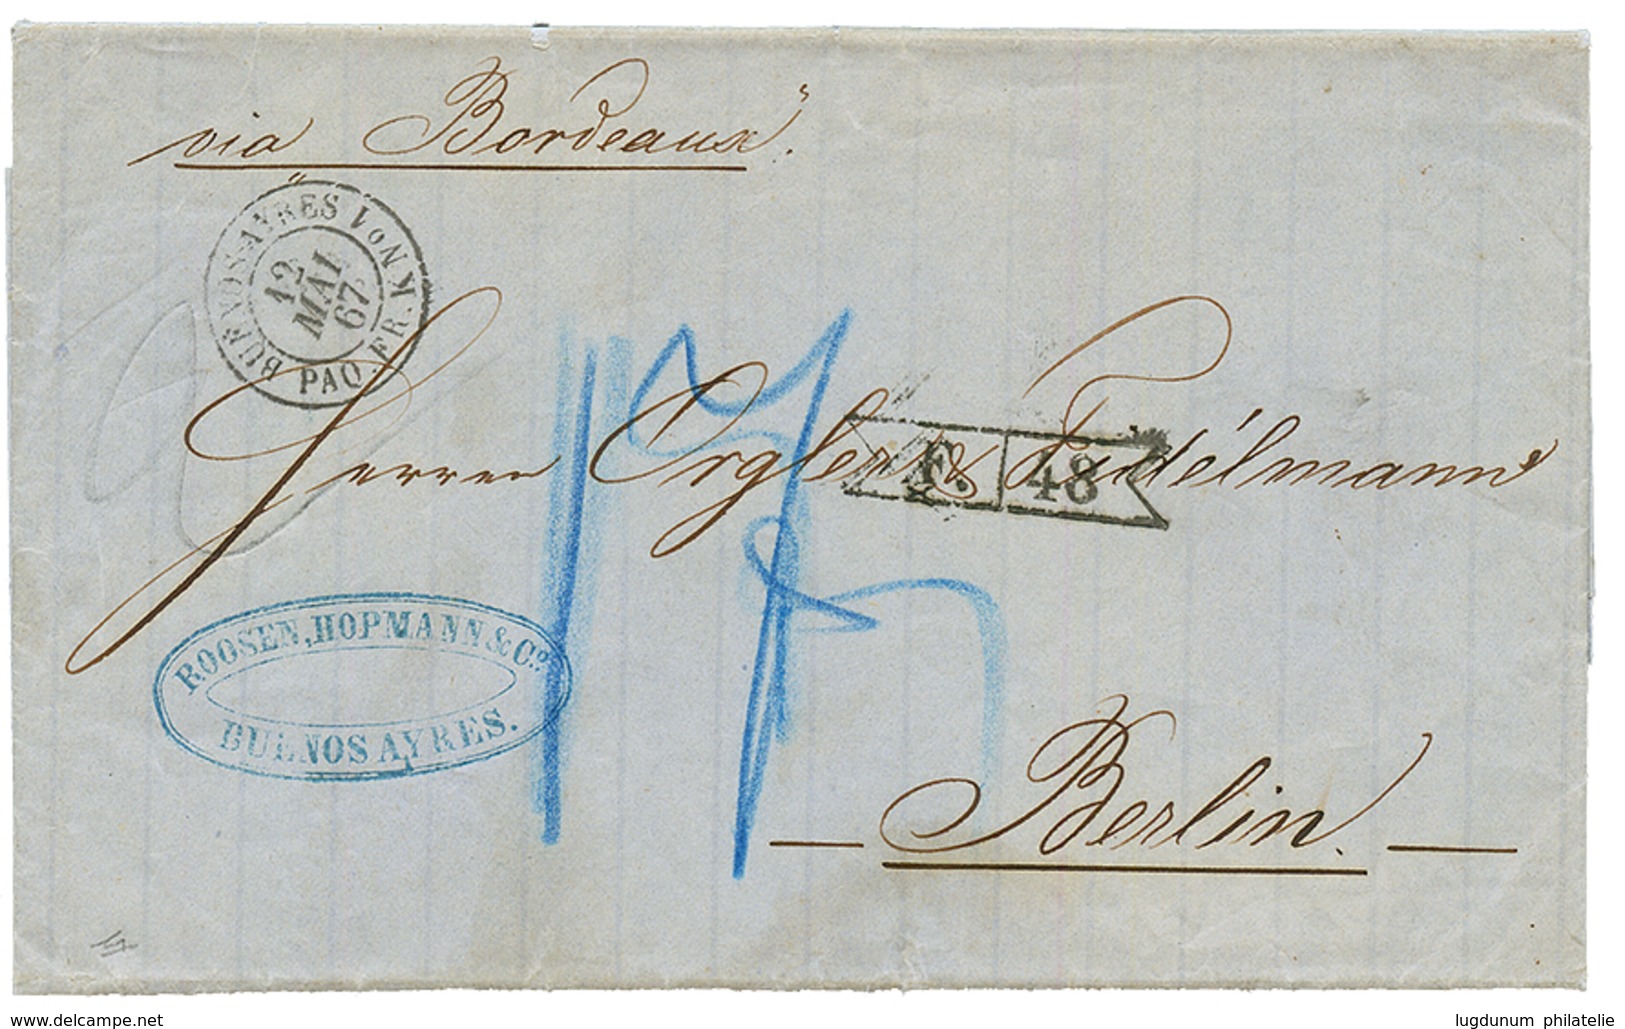 via "Bordeaux".
BUENOS-AYRES PAQ. FR. K No 1
12
MAI
67
Herren Orgler & Fidélmann
F. 48
17
ROOSEN, HOPMANN & Co.
BUENOS AYRES.
Berlin.
www.delcampe.net
lugdunum philatelie